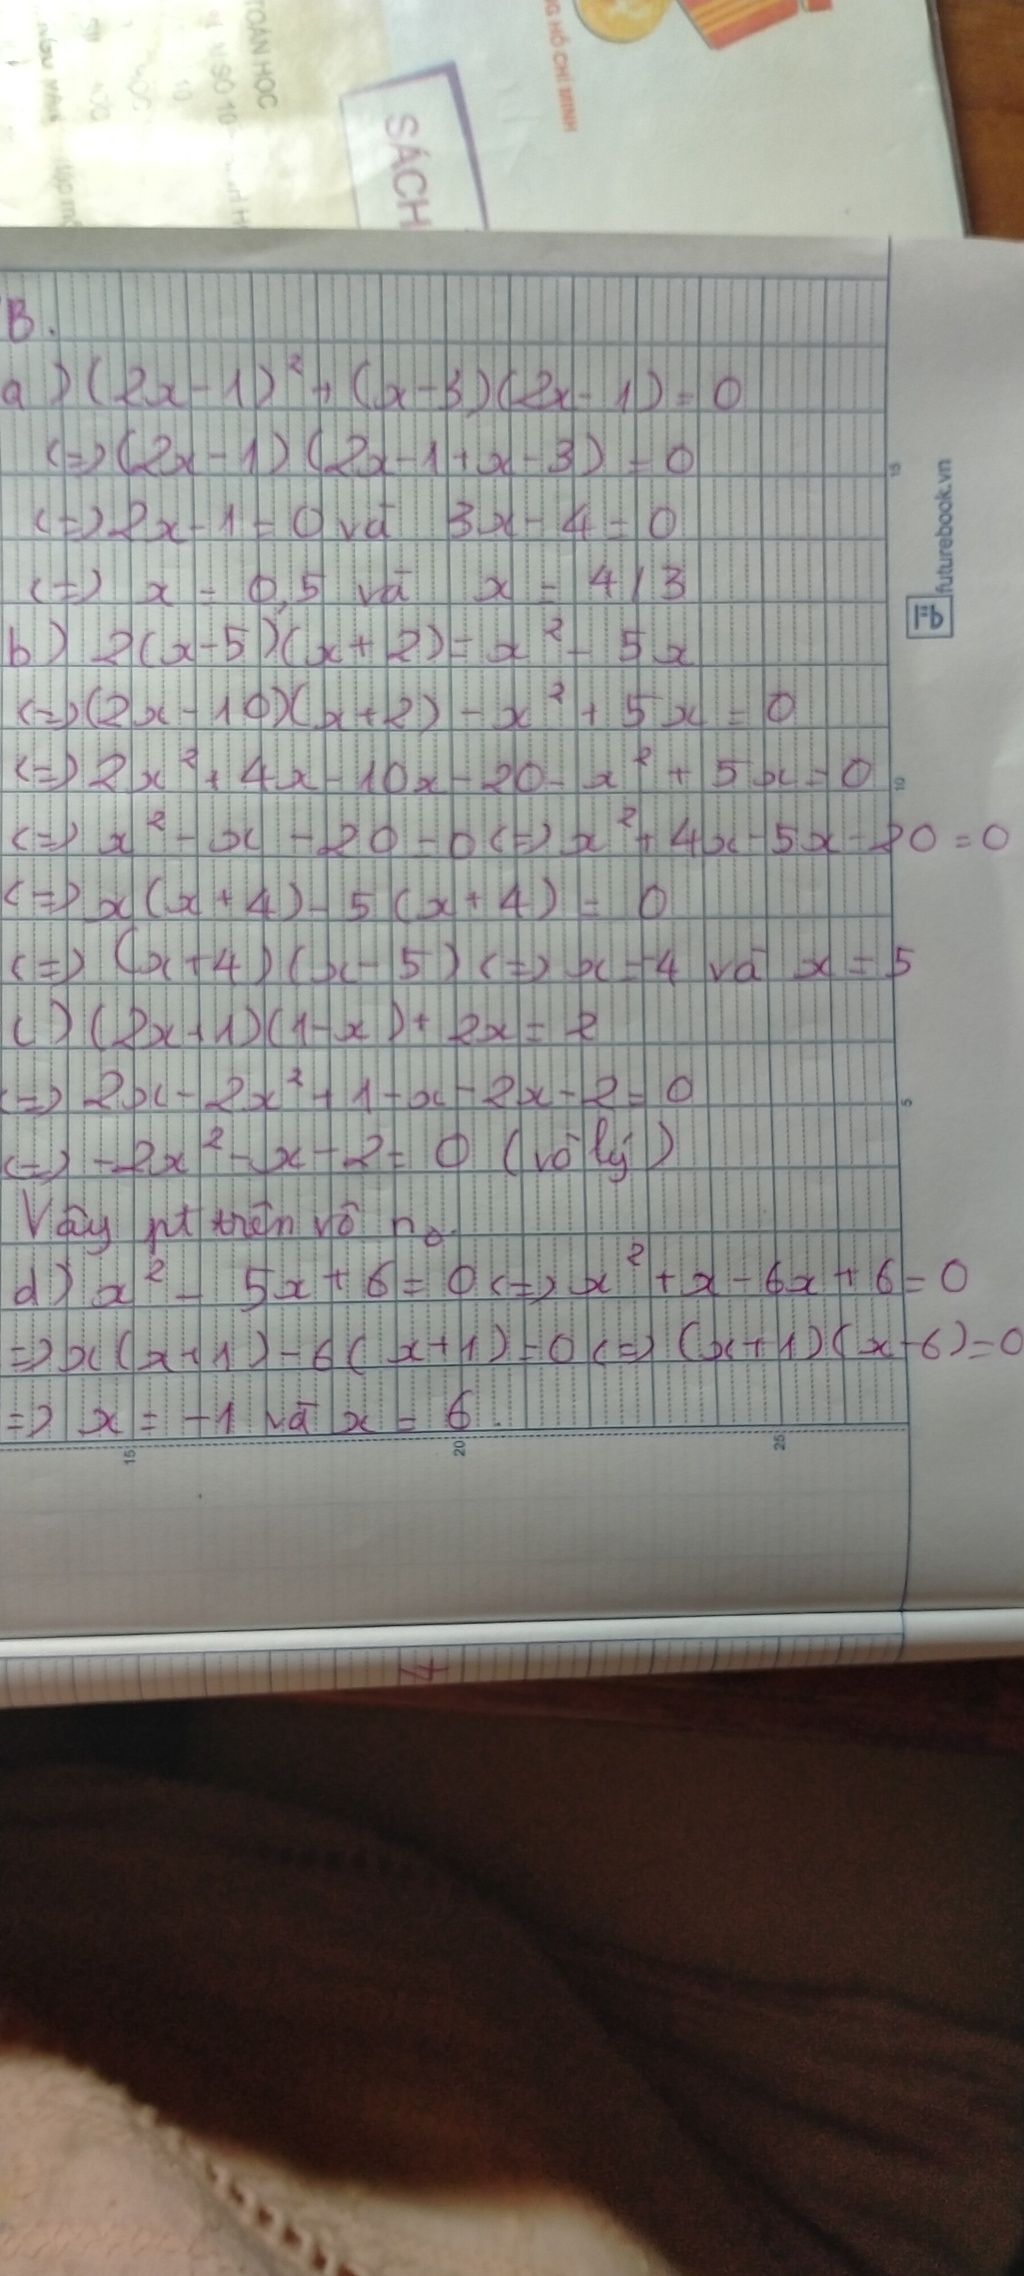 TOÁN HỌC
SÁCH
NG HỒ CHÍ MINH
B.
a) (2x-1)² + (x-3)(2x-1) = 0
<=> (2x-1) (2x-1+x-3) = 0
<=> 2x-1 = 0 và 3x-4 = 0
<=> x = 0,5 và x = 4/3
b) 2(x-5)(x+2) = x² - 5x
<=> (2x-10)(x+2) - x² + 5x = 0
<=> 2x² + 4x - 10x - 20 - x² + 5x = 0
<=> x² - x - 20 = 0 <=> x² + 4x - 5x - 20 = 0
<=> x(x+4) - 5(x+4) = 0
<=> (x+4)(x-5) <=> x = -4 và x = 5
c) (2x+1)(1-x) + 2x = 2
<=> 2x - 2x² + 1 - x - 2x - 2 = 0
<=> -2x² - x - 2 = 0 (vô lý)
Vậy pt trên vô no.
d) x² - 5x + 6 = 0 <=> x² + x - 6x + 6 = 0
=> x(x+1) - 6(x+1) = 0 <=> (x+1)(x-6) = 0
=> x = -1 và x = 6.
futurebook.vn
15
10
5
15
20
25